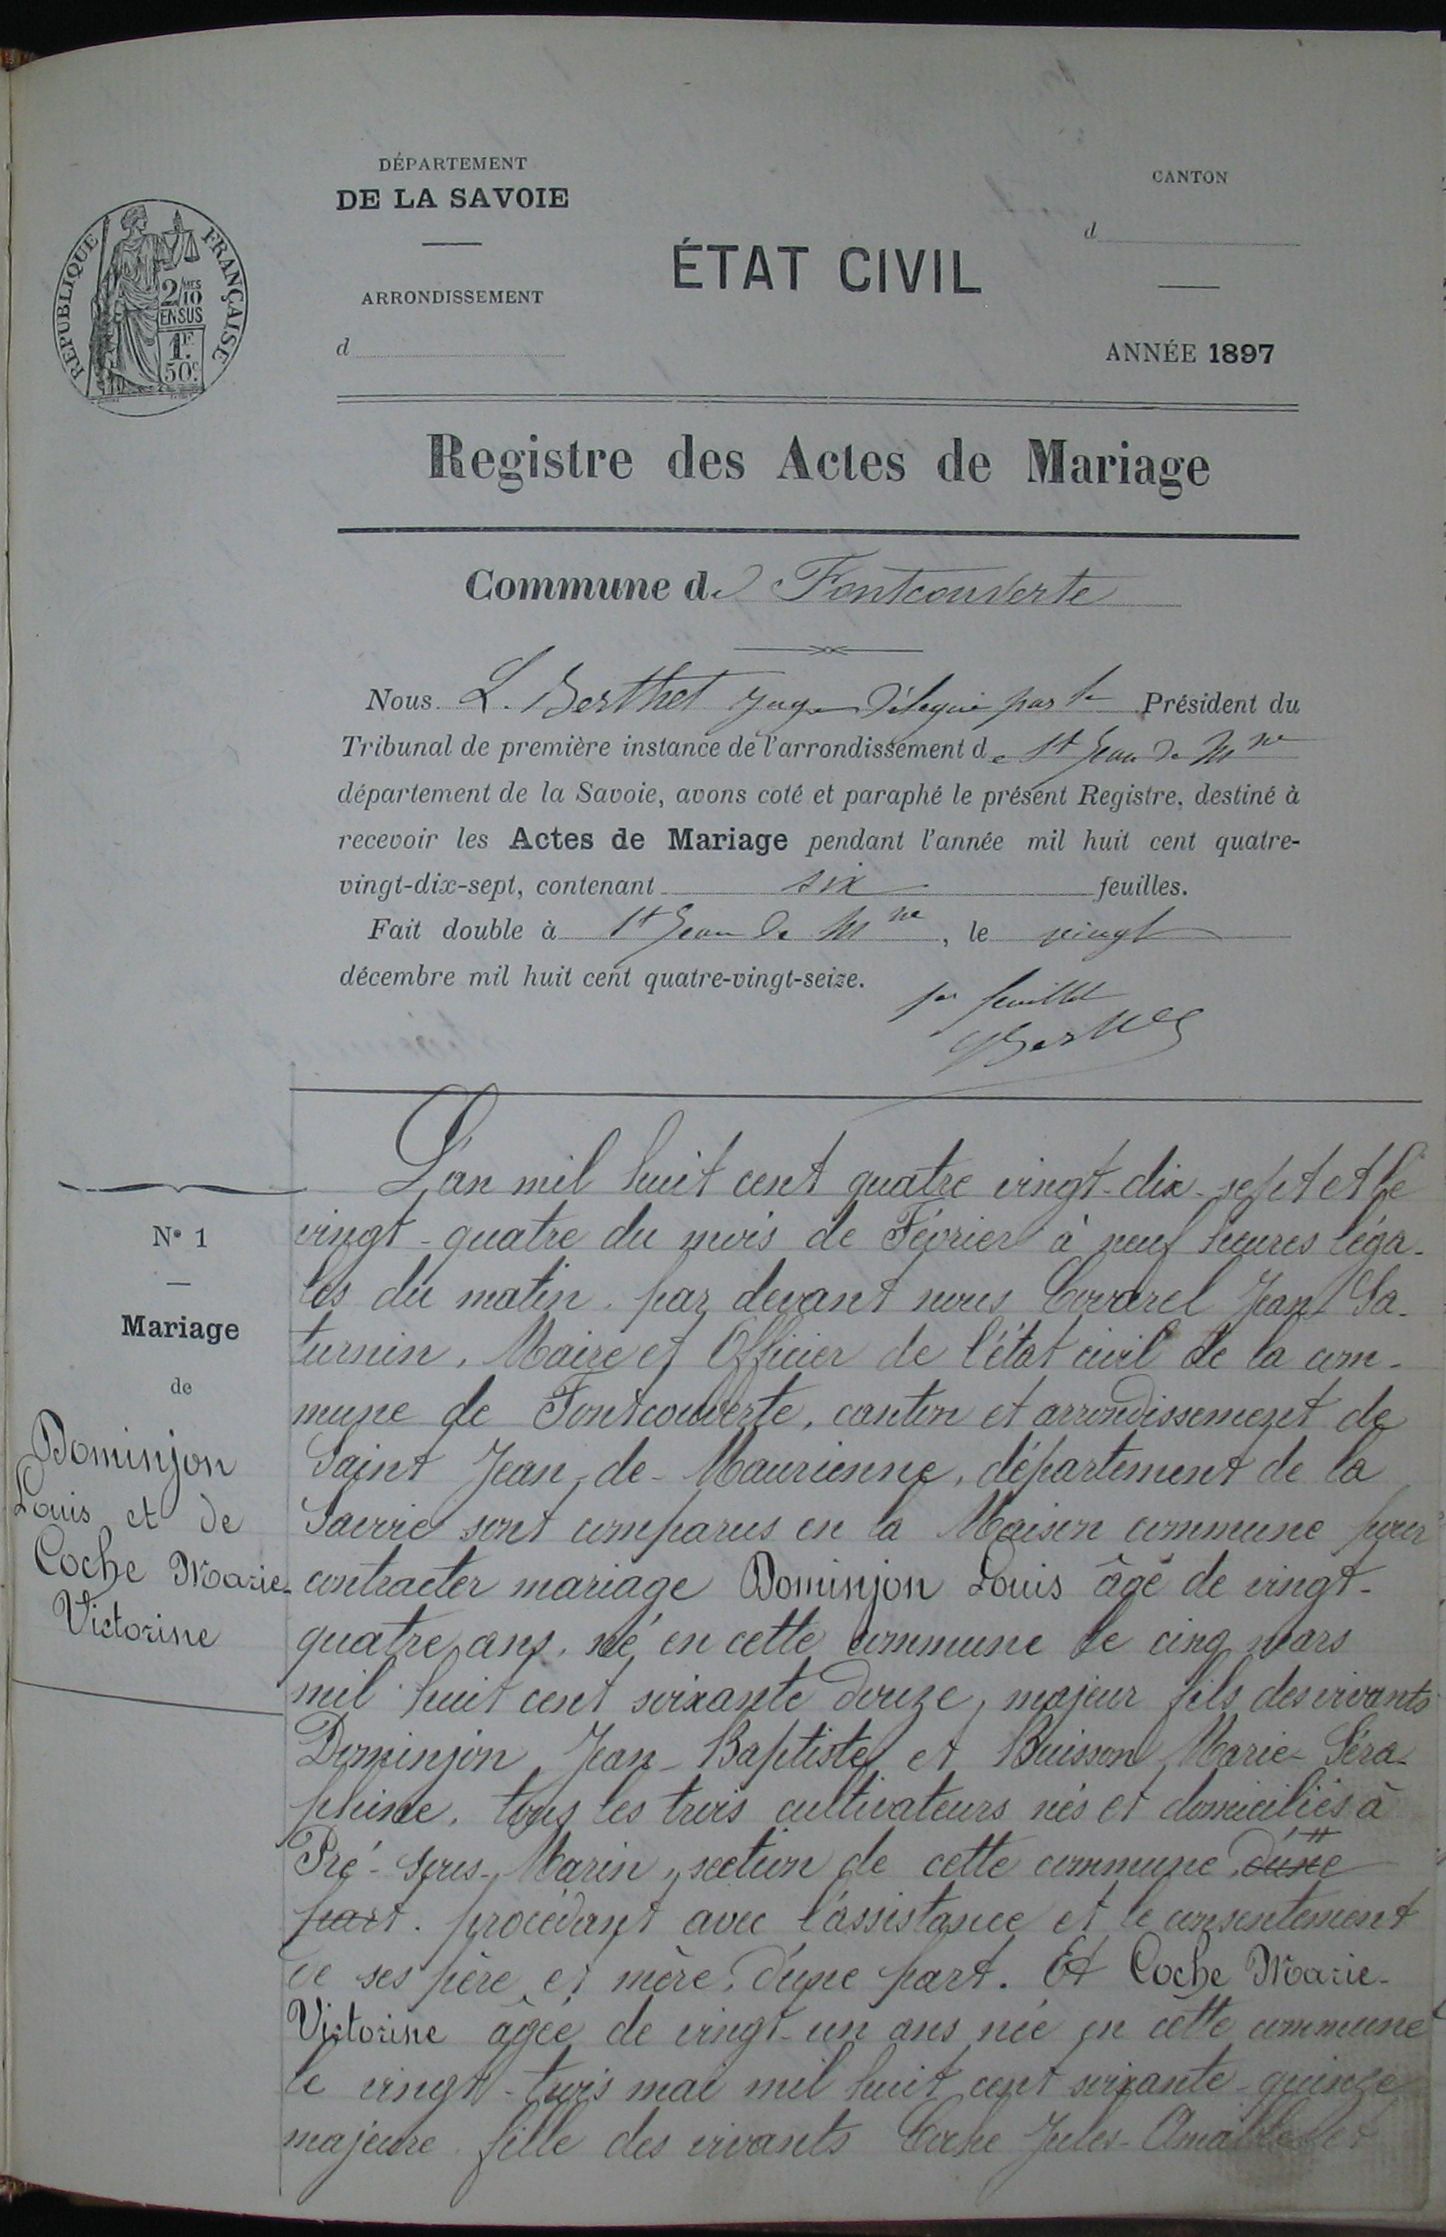 DÉPARTEMENT
DE LA SAVOIE
ARRONDISSEMENT
d
ÉTAT CIVIL
CANTON
d
ANNÉE 1897
RÉPUBLIQUE FRANÇAISE
2/10 MES
EN SUS
1F
50C
Registre des Actes de Mariage
Commune de Fontcouverte
Nous L. Berthet Juge délégué par le Président du
Tribunal de première instance de l'arrondissement de St Jean de Mne
département de la Savoie, avons coté et paraphé le présent Registre, destiné à
recevoir les Actes de Mariage pendant l'année mil huit cent quatre-
vingt-dix-sept, contenant six feuilles.
Fait double à St Jean de Mne, le vingt
décembre mil huit cent quatre-vingt-seize.
1er feuillet
Berthet
N° 1
Mariage
de
Dominjon
Louis et de
Coche Marie-
Victorine
L'an mil huit cent quatre vingt-dix-sept et le
vingt-quatre du mois de Février à neuf heures léga-
les du matin. par devant nous Covarel Jean Sa-
turnin, Maire et Officier de l'état civil de la com-
mune de Fontcouverte, canton et arrondissement de
Saint Jean-de-Maurienne, département de la
Savoie sont comparus en la Maison commune pour
contracter mariage Dominjon Louis âgé de vingt-
quatre ans, né en cette commune le cinq mars
mil huit cent soixante douze, majeur fils des vivants
Dominjon Jean-Baptiste et Buisson Marie-Séra-
phine, tous les trois cultivateurs nés et domiciliés à
Pré-sous-Marin, section de cette commune, d'une
part. procédant avec l'assistance et le consentement
de ses père et mère, d'une part. Et Coche Marie-
Victorine âgée de vingt-un ans née en cette commune
le vingt-trois mai mil huit cent soixante-quinze
majeure fille des vivants Coche Jules-Amable et